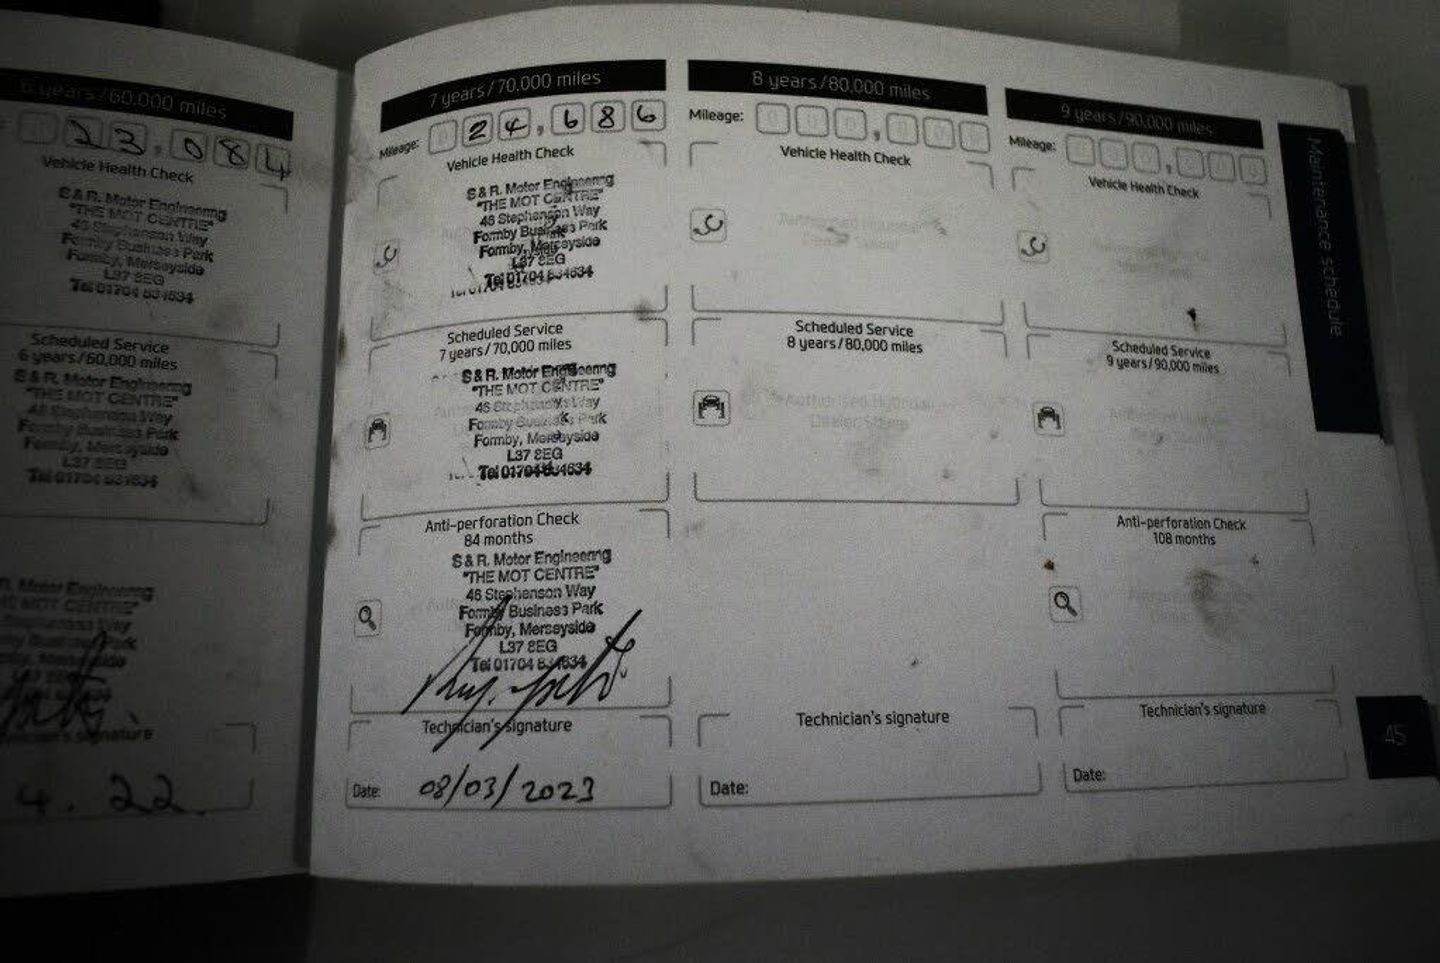 6 years/60,000 miles
23,084
Vehicle Health Check
S & R. Motor Engineering
"THE MOT CENTRE"
Stephenson Way
Formby Business Park
Formby, Merseyside
L37 8EG
Scheduled Service
6 years/60,000 miles
S & R. Motor Engineering
"THE MOT CENTRE"
46 Stephenson Way
Formby Business Park
Formby, Merseyside
L37 8EG
Tel 01704 834634
Motor Engineering
MOT CENTRE"
4.22
7 years/70,000 miles
Mileage: 24,686
Vehicle Health Check
S & R. Motor Engineering
"THE MOT CENTRE"
46 Stephenson Way
Formby Business Park
Formby, Merseyside
L37 8EG
Tel 01704 834634
Scheduled Service
7 years/70,000 miles
S & R. Motor Engineering
"THE MOT CENTRE"
46 Stephenson Way
Formby Business Park
Formby, Merseyside
L37 8EG
Tel 01704 834634
Anti-perforation Check
84 months
S & R. Motor Engineering
"THE MOT CENTRE"
46 Stephenson Way
Formby Business Park
Formby, Merseyside
L37 8EG
Tel 01704 834634
Technician's signature
Date: 08/03/2023
8 years/80,000 miles
Mileage:
Vehicle Health Check
Scheduled Service
8 years/80,000 miles
Authorised Hyundai
Dealer Stamp
Technician's signature
Date:
9 years/90,000 miles
Mileage:
Vehicle Health Check
Scheduled Service
9 years/90,000 miles
Anti-perforation Check
108 months
Technician's signature
Date:
Maintenance schedule
45